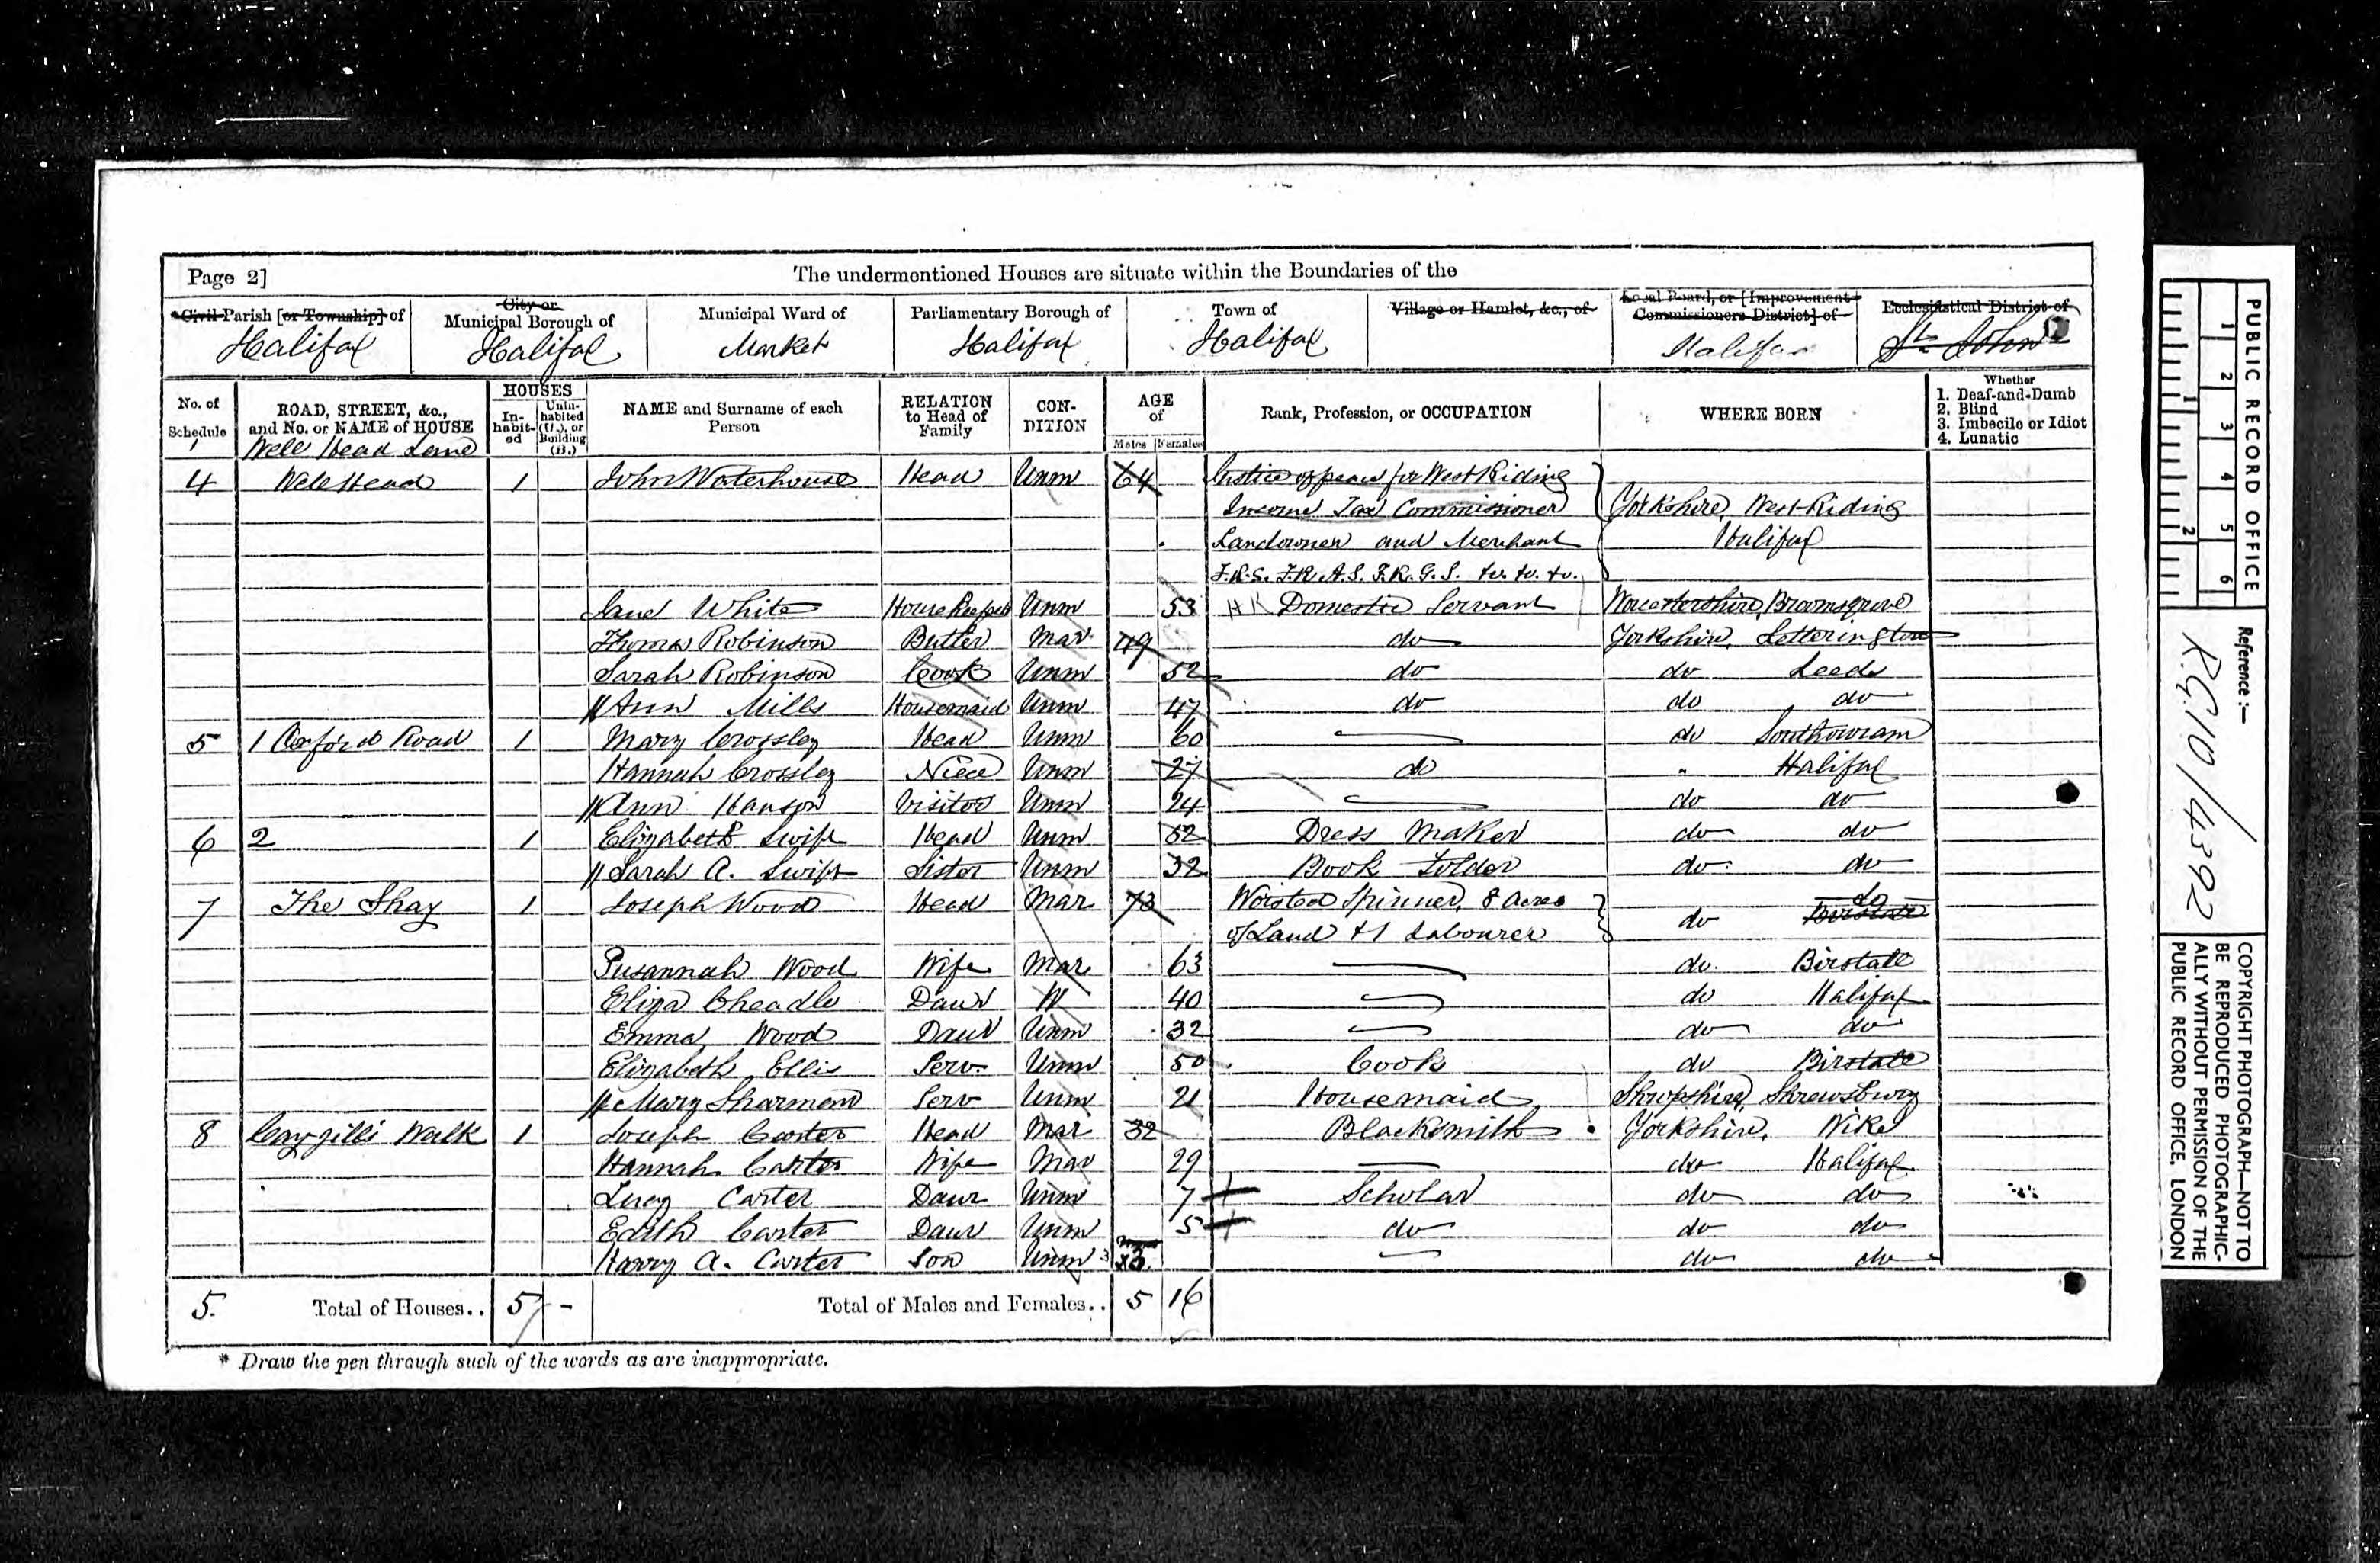 Page 2]
The undermentioned Houses are situate within the Boundaries of the
*Civil Parish [or Township] of
Halifax
City or
Municipal Borough of
Halifax
Municipal Ward of
Market
Parliamentary Borough of
Halifax
Town of
Halifax
Village or Hamlet, &c., of
Local Board, or [Improvement
Commissioners District] of
Halifax
Ecclesiastical District of
St. John
No. of
Schedule
ROAD, STREET, &c.,
and No. or NAME of HOUSE
HOUSES
In-
habit-
ed
Unin-
habited
(U.), or
Building
(B.)
NAME and Surname of each
Person
RELATION
to Head of
Family
CON-
DITION
AGE
of
Males
Females
Rank, Profession, or OCCUPATION
WHERE BORN
Whether
1. Deaf-and-Dumb
2. Blind
3. Imbecile or Idiot
4. Lunatic
Well Head Lane
4 Well Head 1 John Waterhouse Head Unm 64 Justice of peace for West Riding
Income Tax Commissioner Yorkshire, West Riding
Landowner and Merchant Halifax
F.R.S. F.R.A.S. F.R.G.S. &c. &c. &c.
Jane White House Keeper Unm 53 Domestic Servant Worcestershire, Bromsgrove
Thomas Robinson Butler Mar 49 do Yorkshire,
Sarah Robinson Cook Unm 52 do do Leeds
Ann Mills Housemaid Unm 47 do do do
5 1 Oxford Road 1 Mary Crossley Head Unm 60 do Southowram
Hannah Crossley Niece Unm 27 do " Halifax
Ann Hanson Visitor Unm 24 do do
6 2 1 Elizabeth Swift Head Unm 52 Dress Maker do do
Sarah A. Swift Sister Unm 32 Book Folder do do
7 The Shay 1 Joseph Wood Head Mar 73 Worsted Spinner, 8 Acres do do
of Land + 1 Labourer
Susannah Wood Wife Mar 63 do Birstall
Eliza Cheadle Daur W 40 do Halifax
Emma Wood Daur Unm 32 do do
Elizabeth Ellis Serv Unm 50 Cook do Birstall
Mary Sharman Serv Unm 21 Housemaid Shropshire, Shrewsbury
8 Caygill's Walk 1 Joseph Carter Head Mar 32 Blacksmith Yorkshire, Wike
Hannah Carter Wife Mar 29 do Halifax
Lucy Carter Daur Unm 7 Scholar do do
Edith Carter Daur Unm 5 do do do
Harry A. Carter Son Unm 3 do do
5. Total of Houses.. 5 - Total of Males and Females.. 5 16
* Draw the pen through such of the words as are inappropriate.
PUBLIC RECORD OFFICE
1 2 3 4 5 6
1 2
Reference :—
R.G. 10/4392
COPYRIGHT PHOTOGRAPH—NOT TO
BE REPRODUCED PHOTOGRAPHIC-
ALLY WITHOUT PERMISSION OF THE
PUBLIC RECORD OFFICE, LONDON